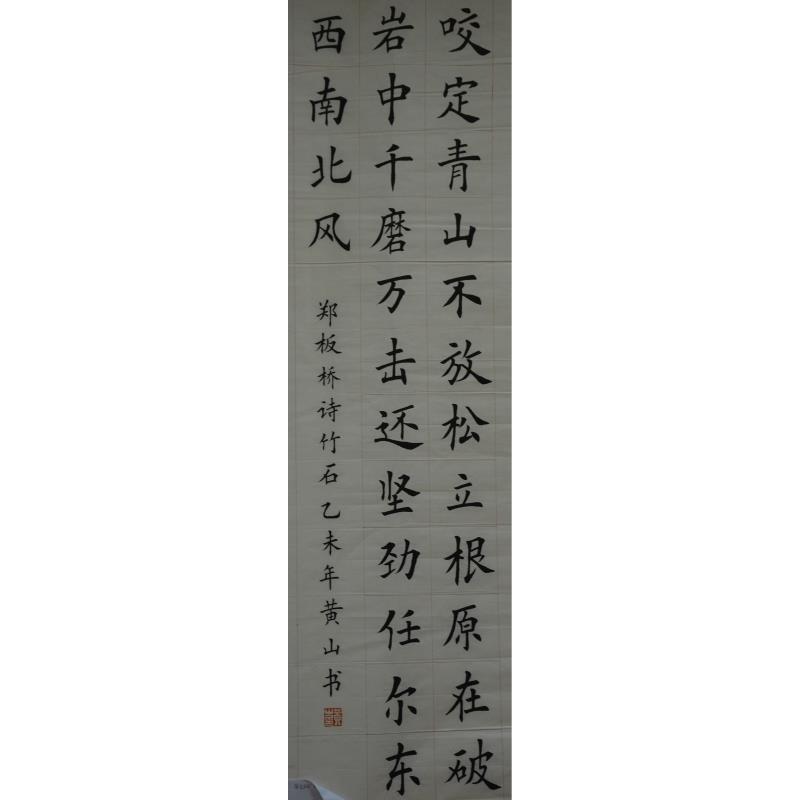 咬定青山不放松立根原在破
岩中千磨万击还坚劲任尔东
西南北风
郑板桥诗竹石乙未年黄山书